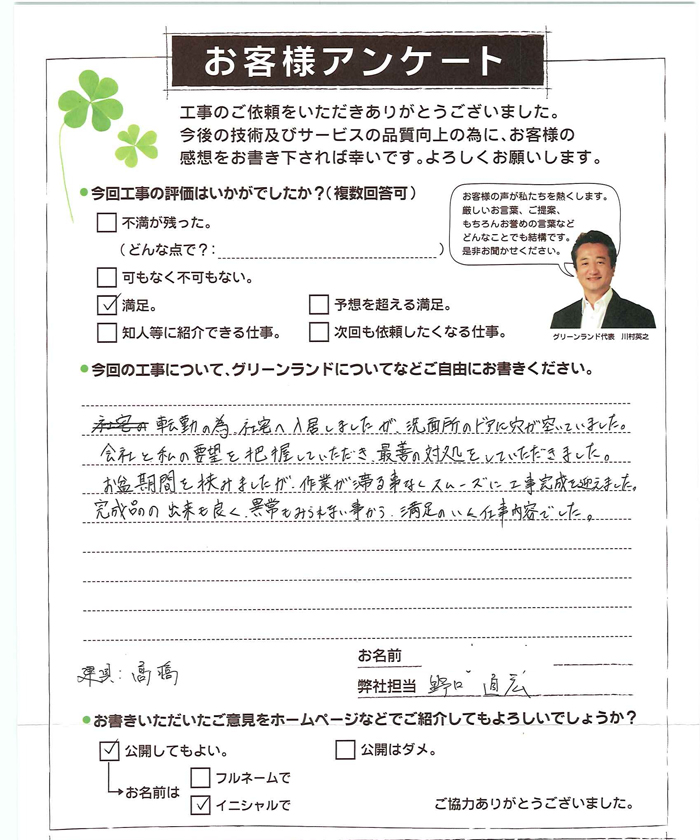 お客様アンケート
工事のご依頼をいただきありがとうございました。
今後の技術及びサービスの品質向上の為に、お客様の
感想をお書き下されば幸いです。よろしくお願いします。
今回工事の評価はいかがでしたか？（複数回答可）
お客様の声が私たちを熱くします。
厳しいお言葉、ご提案、
もちろんお誉めの言葉など
どんなことでも結構です。
是非お聞かせください。
グリーンランド代表 川村英之
不満が残った。
（どんな点で？：）
可もなく不可もない。
満足。 予想を超える満足。
知人等に紹介できる仕事。 次回も依頼したくなる仕事。
今回の工事について、グリーンランドについてなどご自由にお書きください。
社宅の 転勤の為、社宅へ入居しましたが、洗面所のドアに穴が空いていました。
会社と私の要望を把握していただき、最善の対処をしていただきました。
お盆期間を挟みましたが、作業が滞る事なくスムーズに工事完成を迎えました。
完成品の出来も良く、異常もみられない事から、満足のいく仕事内容でした。
お名前
建具：高橋
弊社担当 野口 直宏
お書きいただいたご意見をホームページなどでご紹介してもよろしいでしょうか？
公開してもよい。 公開はダメ。
お名前は フルネームで
イニシャルで
ご協力ありがとうございました。